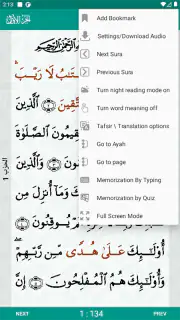 2:13
الجزء الأول
Add Bookmark
Settings/Download Audio
Next Sura
Previous Sura
Turn night reading mode on
Turn word meaning off
Tafsir \ Translation options
Go to Ayah
Go to page
Memorization By Typing
Memorization by Quiz
Full Screen Mode
الْحِزْبُ 1
رَيْبَ
الَّذِينَ
الصَّلَوٰةَ
وَالَّذِينَ
وَمَآ أُنزِلَ مِن
يُوقِنُونَ
أُو۟لَـٰٓئِكَ عَلَىٰ هُدًى مِّن رَّبِّهِمْ
وَأُو۟لَـٰٓئِكَ هُمُ الْمُفْلِحُونَ
NEXT
1 : 134
PREV